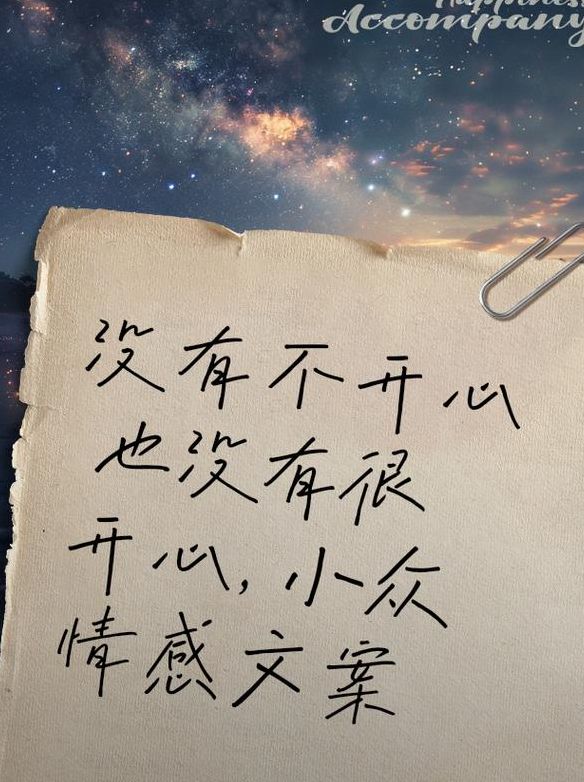 Happiness
Accompany
没有不开心
也没有很
开心,小众
情感文案